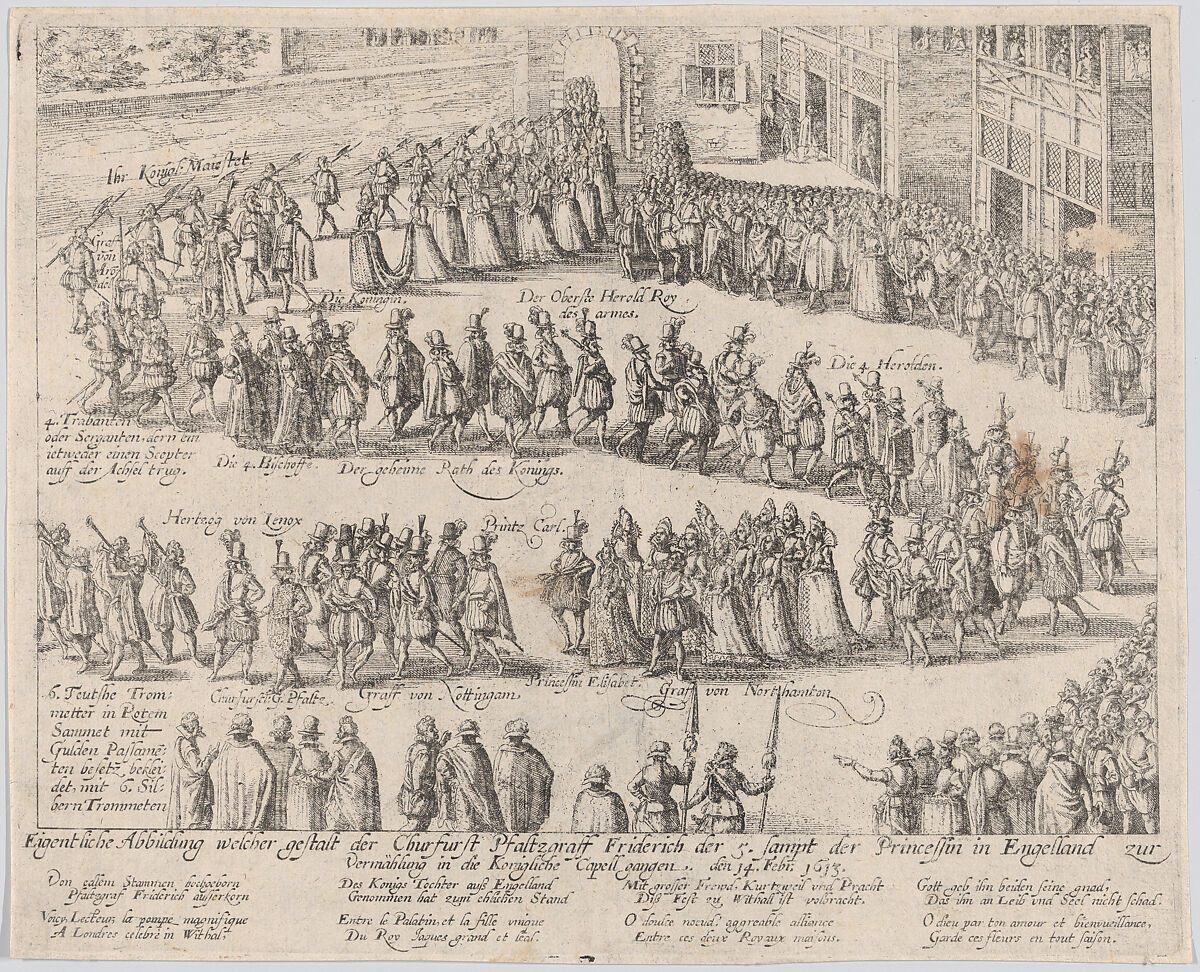 Ihr Königl: Maiestet
Graff
von
Arö
del
Die Konigin.
Der Oberste Herold Roy
des armes.
Die 4. Herolden.
4. Trabanten
oder Serganten, dern ein
ietweder einen Scepter
auff der Achsel trug.
Die 4. Bischoffe.
Der geheime Rath des Konings.
Hertzog von Lenox
Printz Carl.
6. Teutshe Trom:
metter in Rotem
Sammet mit
Gulden Passame:
ten besetz, beklei:
det, mit 6. Sil:
bern Trommeten
Churfürstl: G. Pfaltz.
Graff von Nottingam
Princessin Elisabet.
Graf von Northamton
Eigentliche Abbildung welcher gestalt der Churfürst Pfaltzgraff Friderich der 5. sampt der Princessin in Engelland zur
Vermählung in die Königliche Capell gangen. den 14. Febr. 1613.
Von edlem Stammen hochgeborn
Pfaltzgraf Friderich außerkorn
Des Königs Tochter auß Engelland
Genommen hat zum ehlichen Stand
Mit grosser Frewd, Kurtzweil vnd Pracht
Diß Fest zu Withall ist volbracht.
Gott geb ihn beiden seine gnad,
Das ihn an Leib vnd Seel nicht schad.
Voicy, Lecteur, la pompe magnifique
A Londres celebré in Withal,
Entre le Palatin, et la fille vnique
Du Roy Jaques grand et leal.
O doulce noeud, aggreable alliance
Entre ces deux Royaux maisons.
O dieu par ton amour et bienvueillance,
Garde ces fleurs en tout saison.